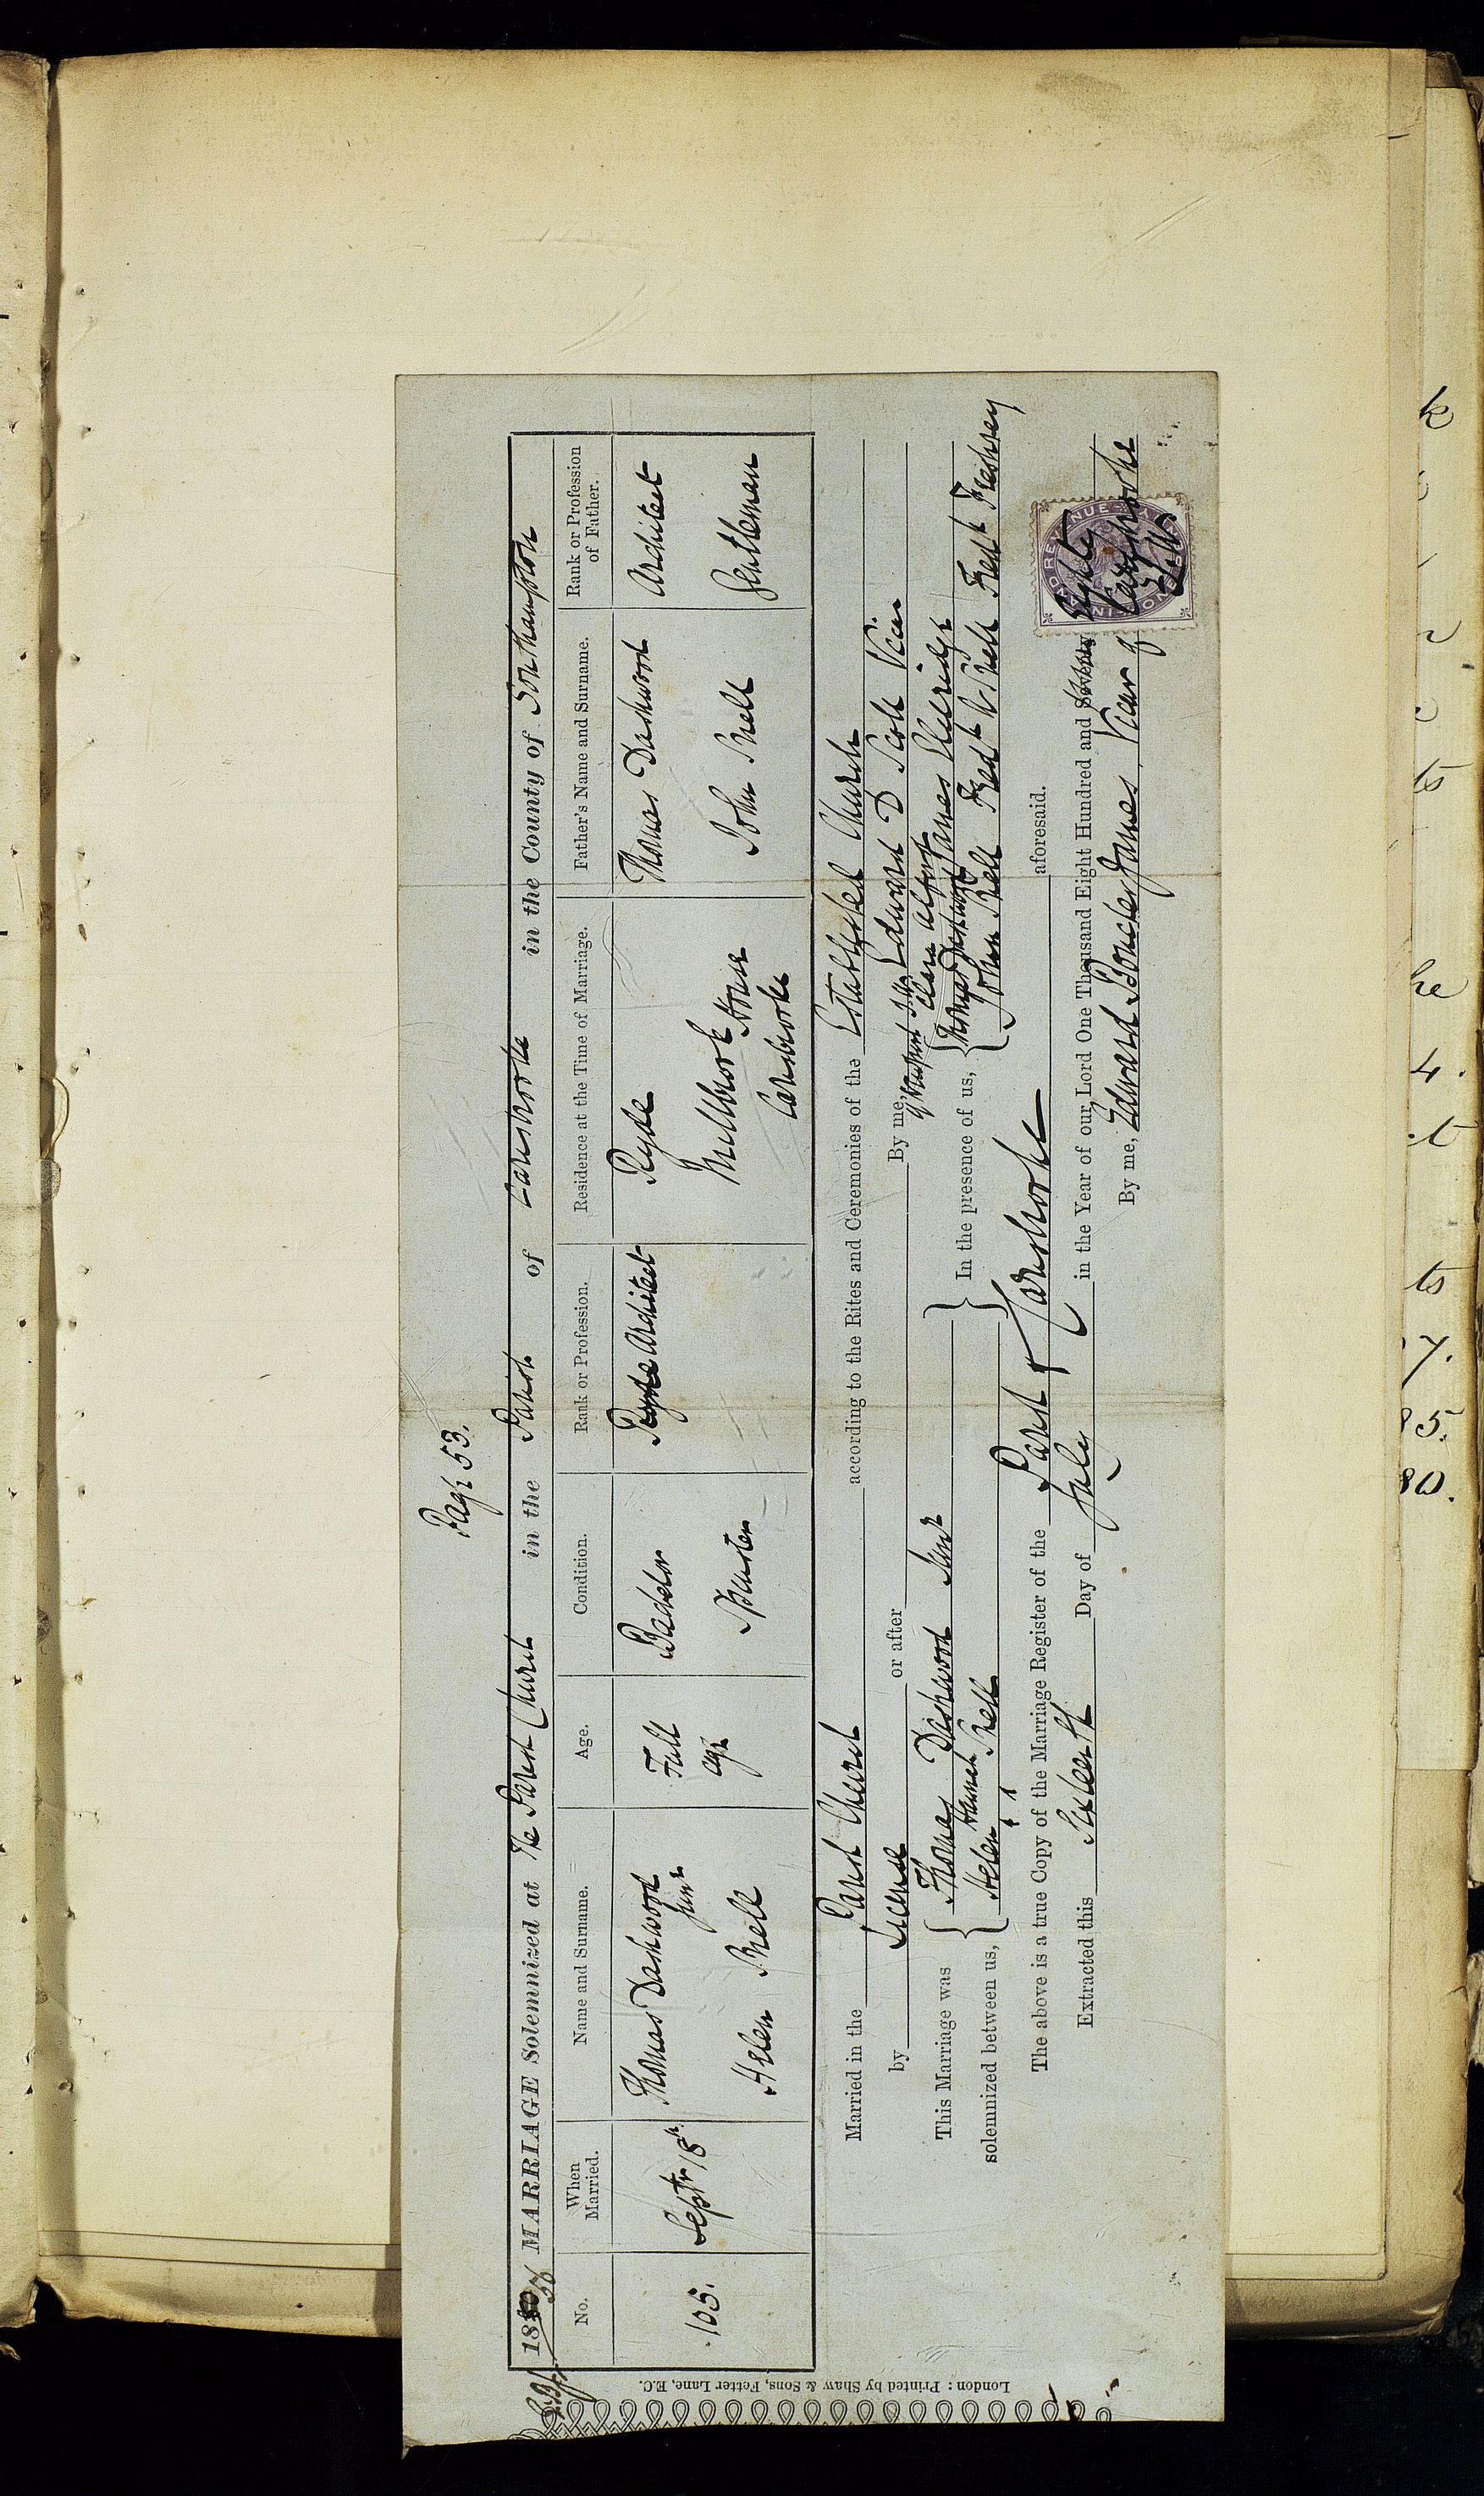 Page 53.
1856 MARRIAGE Solemnized at The Parish Church in the Parish of Carisbrooke in the County of Southampton
No. When Married. Name and Surname. Age. Condition. Rank or Profession. Residence at the Time of Marriage. Father's Name and Surname. Rank or Profession of Father.
105. Septr 18th Thomas Dashwood Junr Full Bachelor Architect Ryde Thomas Dashwood Architect
Helen Shell age Spinster Millbrook House Carisbrooke John Shell Gentleman
Married in the Parish Church according to the Rites and Ceremonies of the Established Church
by License or after By me, Edward D Scott Vicar
of Newport I.W. Clara Alford
This Marriage was solemnized between us, { Thomas Dashwood Junr } In the presence of us, { Thomas Dashwood James Eldridge
{ Helen Hannah Shell } { John Shell Fredk W Shell Fredk
The above is a true Copy of the Marriage Register of the Parish of Carisbrooke aforesaid.
Extracted this Sixteenth Day of July in the Year of our Lord One Thousand Eight Hundred and Seventy Eighty
By me, Edward Boucher James Vicar of Carisbrooke
I.W.
INLAND REVENUE
ONE PENNY
London: Printed by Shaw & Sons, Fetter Lane, E.C.
E.B.J.
k
ts
he
4.
t
ts
7.
85.
80.